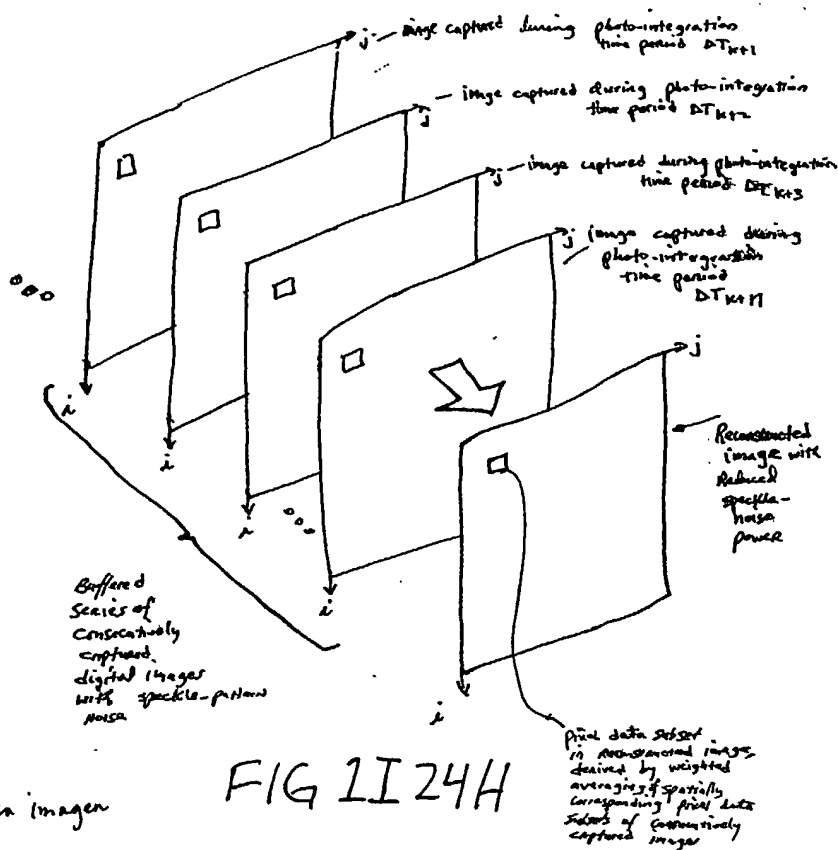 j image captured during photo-integration
time period ΔT K+1
j image captured during photo-integration
time period ΔT K+2
j image captured during photo-integration
time period ΔT K+3
j image captured during
photo-integration
time period
ΔT K+N
j
Reconstructed
image with
Reduced
speckle-
noise
power
i
i
i
i
i
Buffered
Series of
Consecutively
captured
digital images
with speckle-pattern
noise
pixel data subset
in reconstructed image,
derived by weighted
averaging of spatially
corresponding pixel data
subsets of consecutively
captured images
FIG 1I24H
imagen